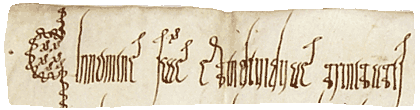 In nomine sce & indiuidue trinitatis